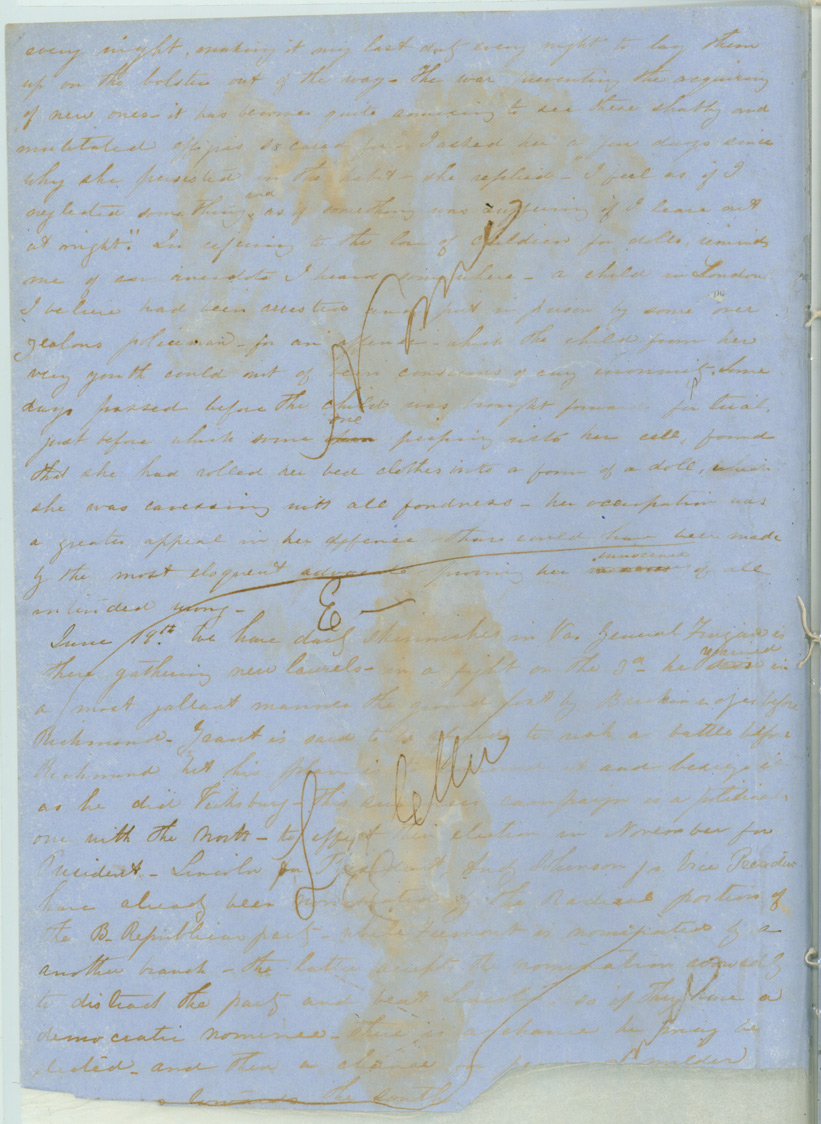 every night, making it my last duty every night to lay them
up on the bolster out of the way. The war preventing the acquiring
of new ones it has become quite amusing to see these shabby and
mutilated effigies cared for I asked her a few days since
why she persisted in the habit - she replied - "I feel as if I
neglected something and as if something was suffering if I leave out
at night". In refering to the love of children for dolls, reminds
me of an anecdote I heard somewhere - a child in London
I believe had been arrested and put in prison by some over
zealous policeman - for an offence which the child from her
very youth could out of been conscious of any enormity. Some
days passed before the child was brought forward for trial,
just before which some one peeping into her cell, found
that she had rolled her bed clothes into a form of a doll, which
she was caressing with all fondness - her occupation was
a greater appeal in her defence than could have been made
by the most eloquent advocate proving her innocence of all
intended wrong -
E -
June 19th. We have daily skirmishes in Va. General is
there gathering new laurels - in a fight on the 3rd he regained in
a most gallant manner the ground lost by before
Richmond. Grant is said to be to risk a battle before
Richmond but his plan is to and besiege it
as he did Vicksburg - This campaign is a political
one with the North - to effect their election in November for
President - Lincoln for President, Andy Johnson for Vice President
have already been nominated by the Radical portion of
the B. Republican party - while Fremont is nominated by a
another branch - the latter accepts the nomination
to distract the party and beat Lincoln - so if they have a
democratic nominee - there is a chance he may be
elected - and then a chance
towards the South